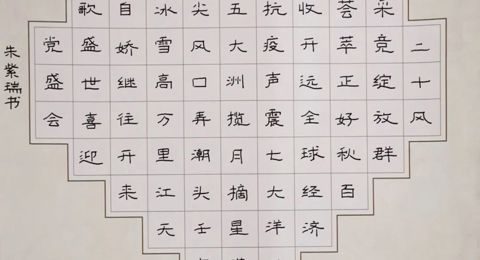 二十风
采竞绽放群
荟萃正好秋百
收开远全球经济
抗疫声震七大洋
五大洲揽月摘星
尖风口弄潮头壬
冰雪高万里江天
自娇继往开来
歌盛世喜迎
党盛会
朱紫瑞书